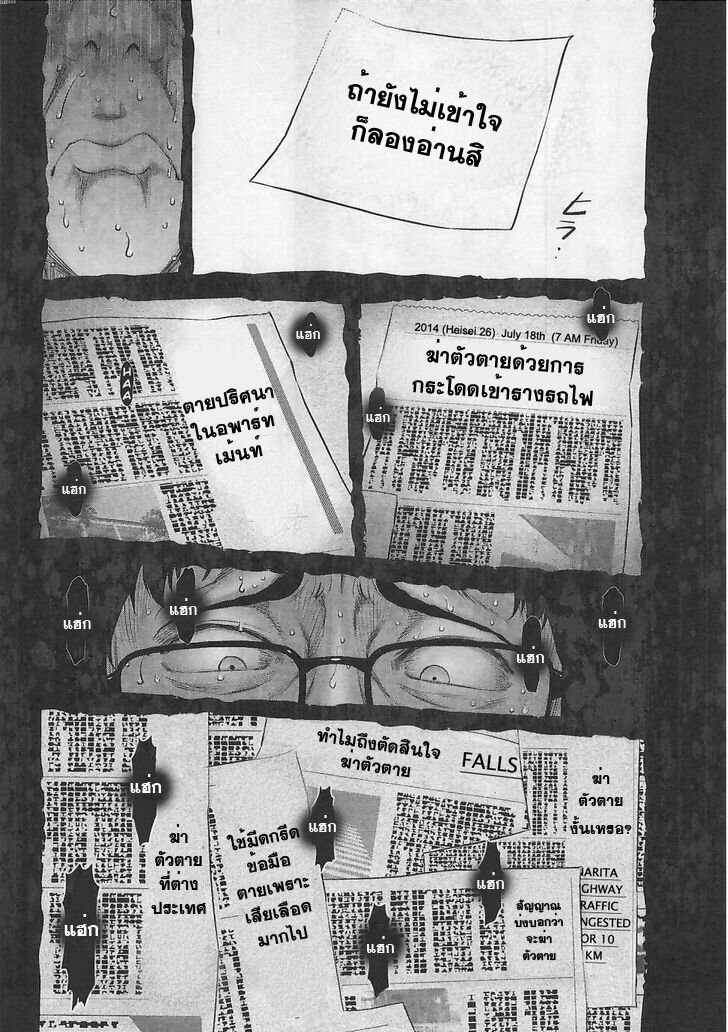 ถ้ายังไม่เข้าใจ
ก็ลองอ่านสิ
ヒラ…
แฮ่ก
ตายปริศนา
ในอพาร์ท
เม้นท์
HAA
แฮ่ก
แฮ่ก
2014 (Heisei 26) July 18th (7 AM Friday)
ฆ่าตัวตายด้วยการ
กระโดดเข้ารางรถไฟ
แฮ่ก
แฮ่ก
แฮ่ก
แฮ่ก
แฮ่ก
แฮ่ก
ทำไมถึงตัดสินใจ
ฆ่าตัวตาย
FALLS
ฆ่า
ตัวตาย
งั้นเหรอ?
แฮ่ก
ฆ่า
ตัวตาย
ที่ต่าง
ประเทศ
แฮ่ก
ใช้มีดกรีด
ข้อมือ
ตายเพราะ
เสียเลือด
มากไป
แฮ่ก
แฮ่ก
สัญญาณ
บ่งบอกว่า
จะฆ่า
ตัวตาย
แฮ่ก
NARITA
HIGHWAY
TRAFFIC
NGESTED
OR 10
KM